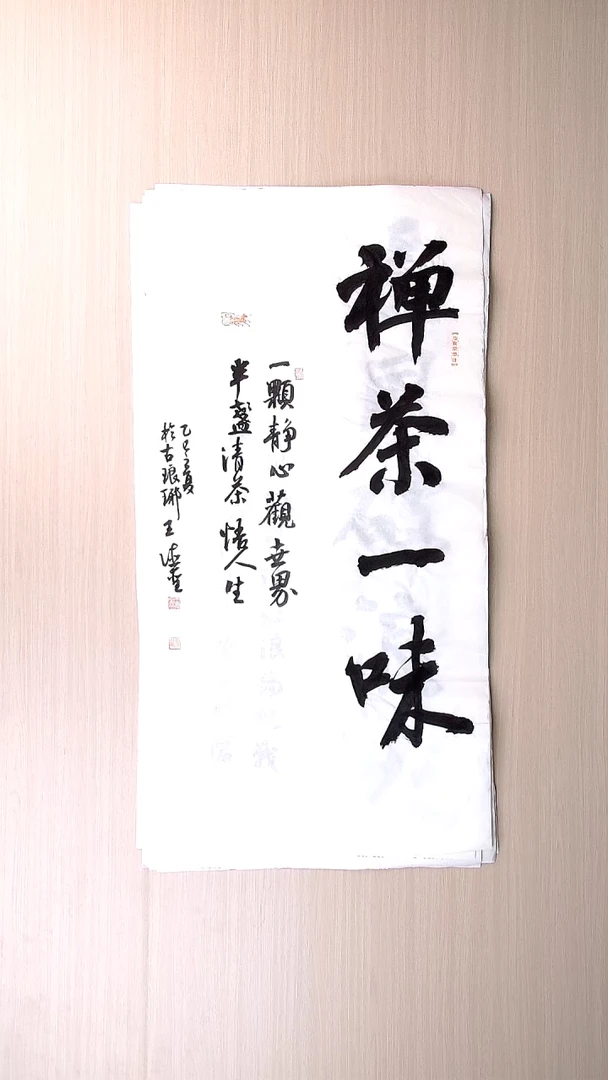 禅茶一味
一顆静心觀世界
半盞清茶悟人生
乙巳夏
於古琅琊王